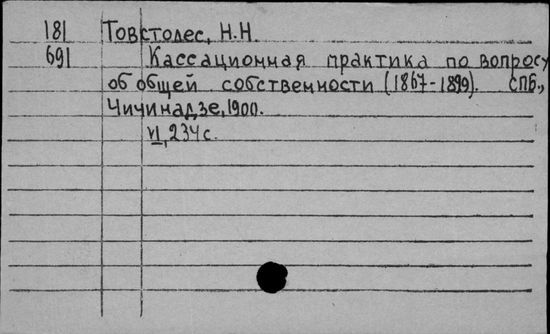 181 Товстолес, Н.Н.
691 Кассационная практика по вопросу
об общей собственности (1867-1899). СПб.,
Чичинадзе, 1900.
VI, 234 с.